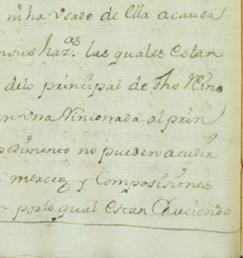 mha Usado de Ella a causa
en sus haz.as las quales Estan
delo principal de Tho Nino
en Una al prin
pedimento no pueden acudir
merced y Composisiones
porlo qual Estan Careciendo